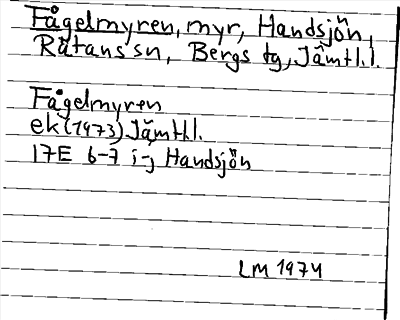 Fågelmyren, myr, Handsjön,
Rätans sn, Bergs tg, Jämtl.l.
Fågelmyren
ek (1973) Jämtl.
17E 6-7 i-j Handsjön
LM 1974